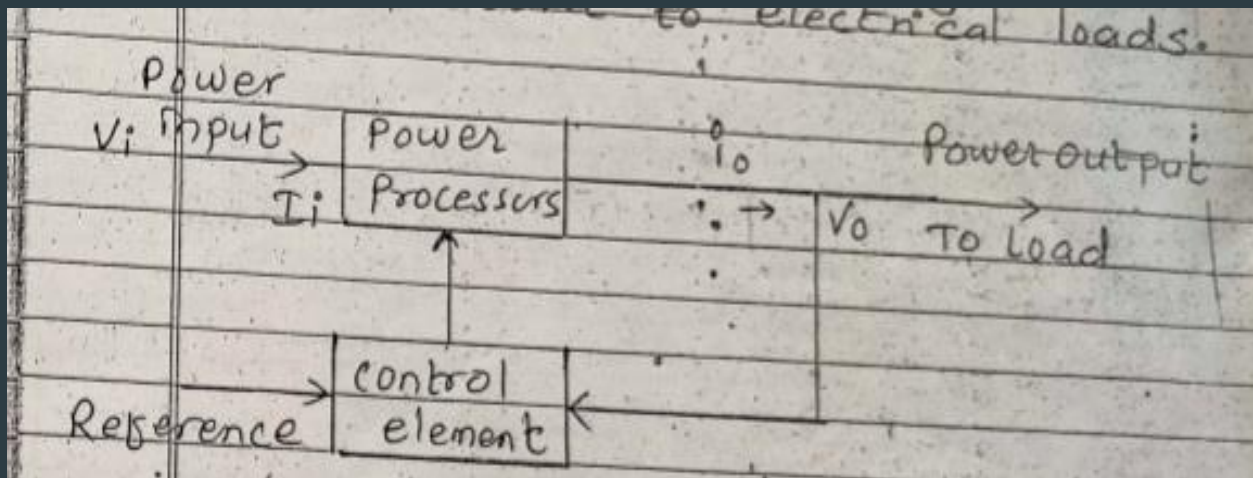 to electrical loads.
Power
Vi input
Ii
Power
Processurs
io
Power output
Vo To Load
control
element
Reference